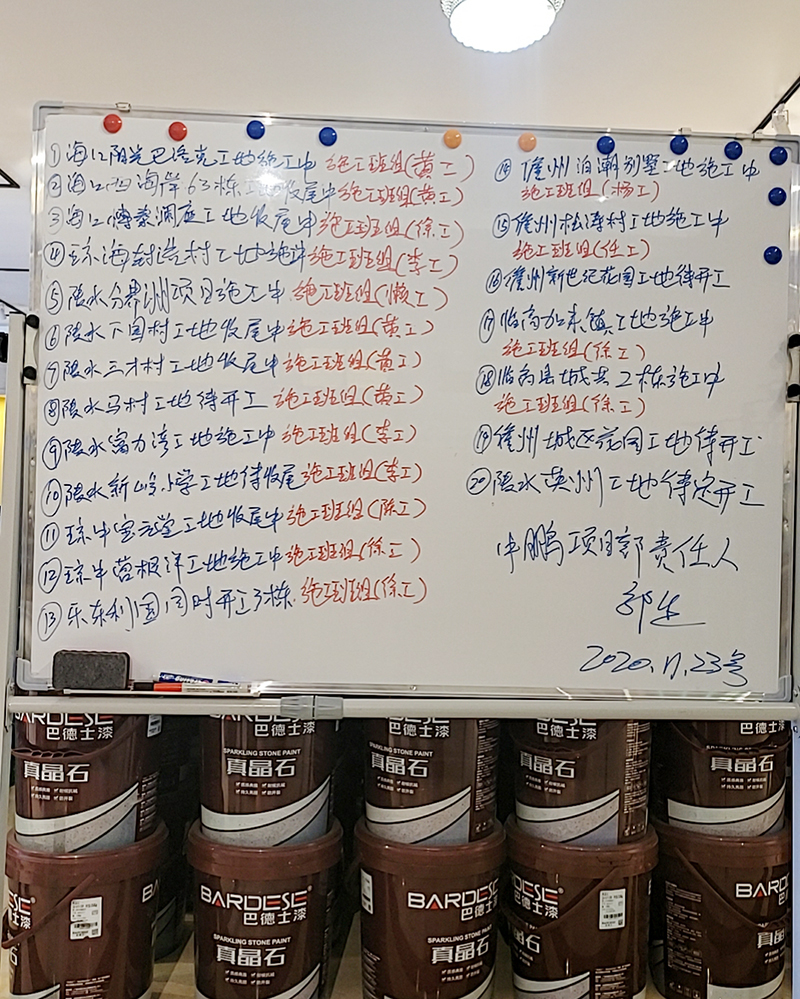 ①海口阳光巴洛克工地施工中 施工班组(黄工)
②海口西海岸63栋工地收尾中施工班组(黄工)
③海口傅泰澜庭工地收尾中施工班组(徐工)
④琼海封浩村工地施中施工班组(李工)
⑤陵水分界洲项目施工中 施工班组(懒工)
⑥陵水下园村工地收尾中施工班组(黄工)
⑦陵水三才村工地收尾中施工班组(黄工)
⑧陵水马村工地待开工 施工班组(黄工)
⑨陵水富力湾工地施工中 施工班组(李工)
⑩陵水新岭小学工地待收尾施工班组(李工)
⑪琼中宝元堂工地收尾中施工班组(陈工)
⑫琼中营根洋工地施工中施工班组(徐工)
⑬乐东利国同时开工3栋 施工班组(徐工)
⑭儋州泊潮别墅工地施工中
施工班组(杨工)
⑮儋州松涛村工地施工中
施工班组(任工)
⑯儋州新世纪花园工地待开工
⑰临高加来镇工地施工中
施工班组(徐工)
⑱临高县城共2栋施工中
施工班组(徐工)
⑲儋州城区花园工地待开工
⑳陵水英州工地待定开工
中鹏项目部责任人
郭生
2020.11.23号
BARDESE
巴德士漆
SPARKLING STONE PAINT
真晶石
BARDESE
巴德士漆
SPARKLING STONE PAINT
真晶石
BARDESE
巴德士漆
SPARKLING STONE PAINT
真晶石
BARDESE
巴德士漆
真晶石
BARDESE
巴德士漆
真晶石
BARDESE
巴德士漆
BARDESE
巴德士漆
SPARKLING STONE PAINT
真晶石
BARDESE
巴德士漆
SPARKLING STONE PAINT
真晶石
BARDESE
巴德士漆
真晶石
BARD
巴德
真晶